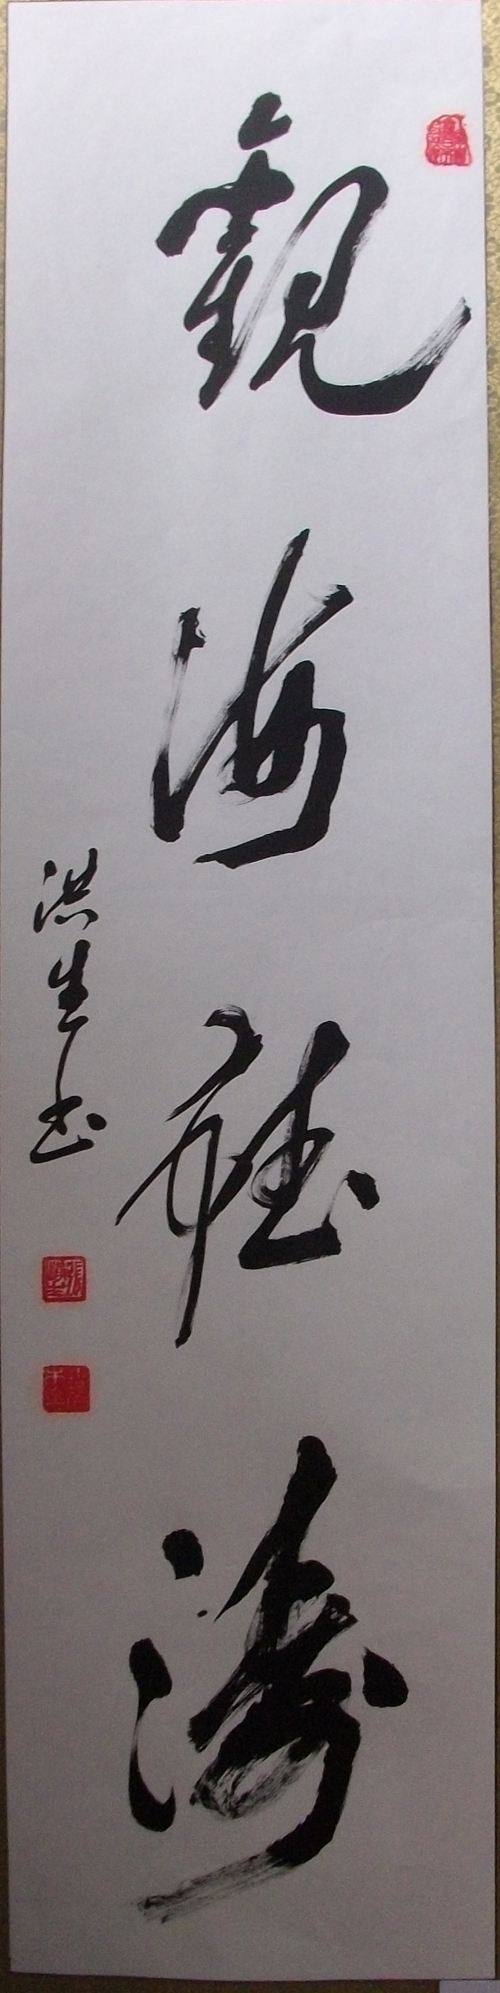 觀海聽濤
洪生书